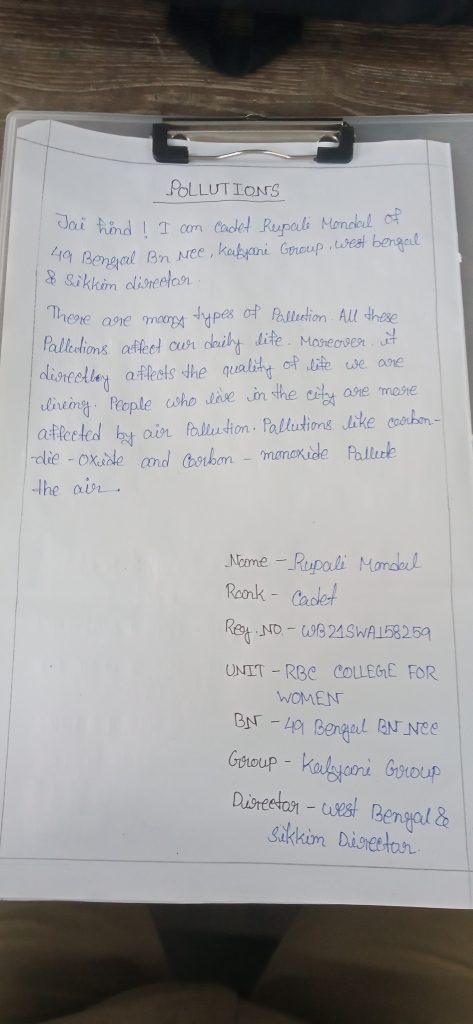 POLLUTIONS
Jai hind ! I am cadet Rupali Mondal of
49 Bengal Bn NCC, Kalyani Group, west bengal
& Sikkim director.
There are many types of Pollution. All these
Pollutions affect our daily life. Moreover it
directley affects the quality of life we are
living. People who live in the city are more
affected by air Pollution. Pollutions like carbon-
-die-oxide and Carbon - monoxide Pollute
the air.
Name - Rupali Mondal
Rank - Cadet
Reg. NO. - WB21SWA158259
UNIT - RBC COLLEGE FOR
WOMEN
BN - 49 Bengal BN NCC
Group - Kalyani Group
Director - West Bengal &
Sikkim Director.